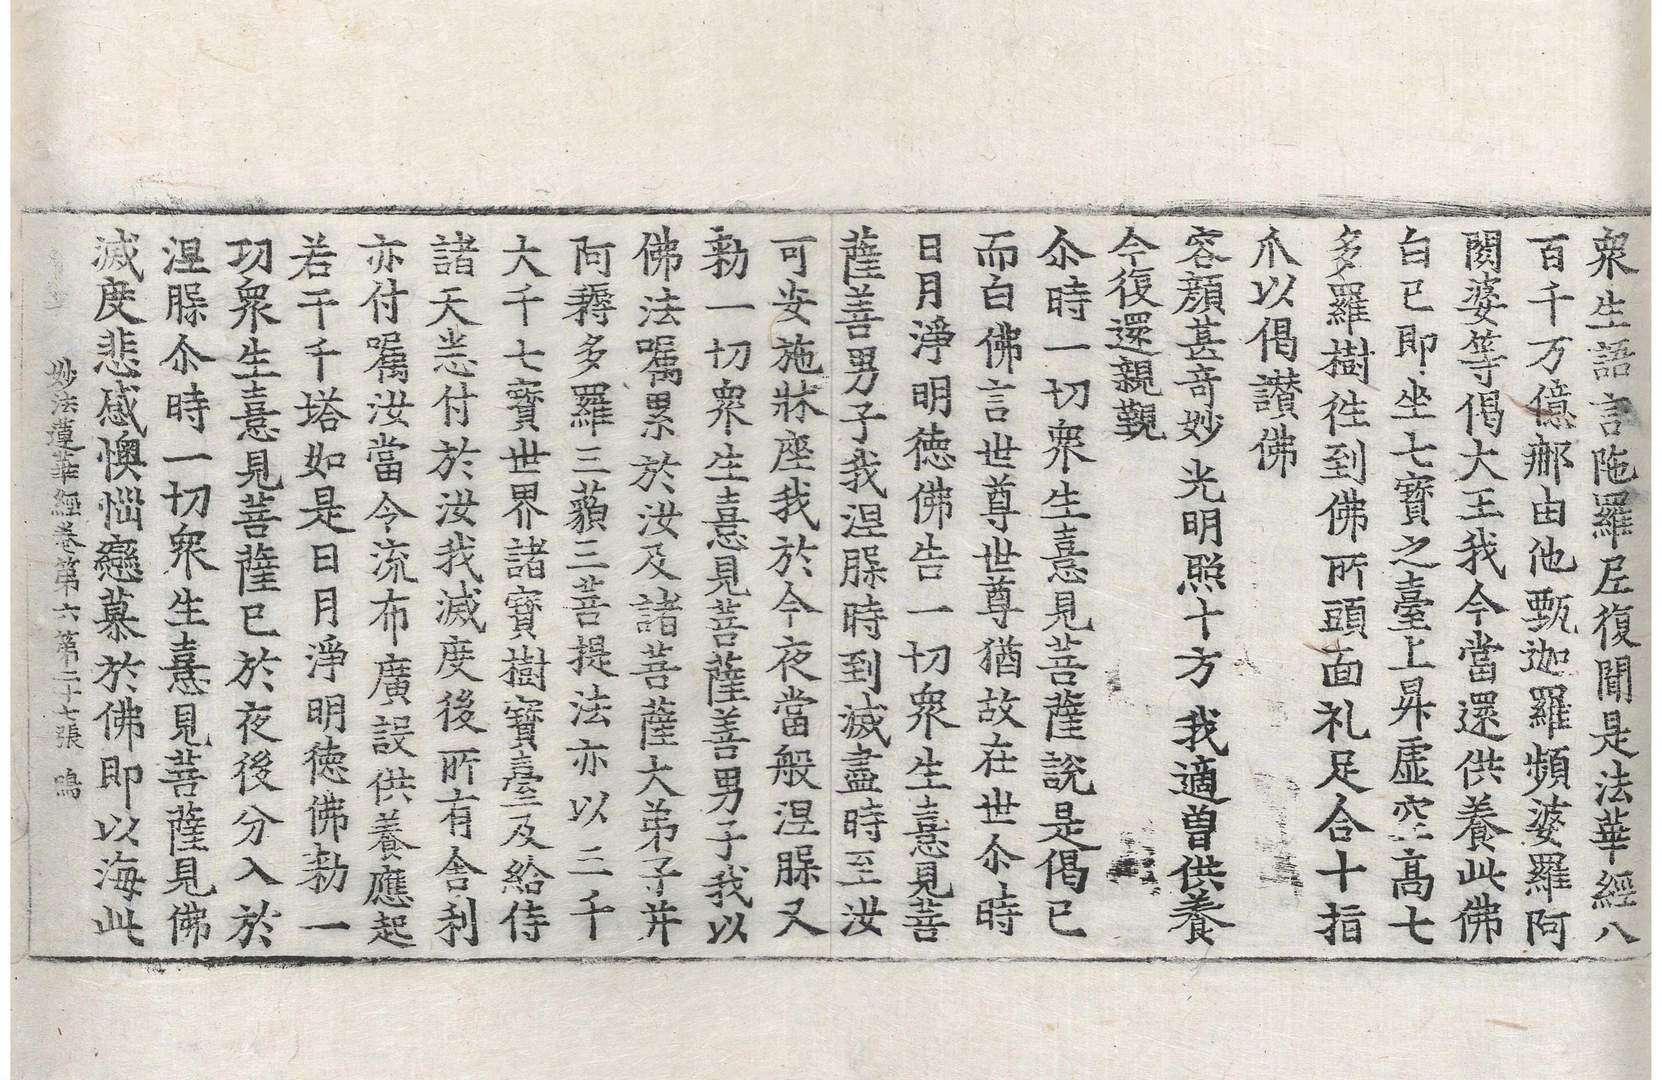 衆生語言陁羅尼復聞是法華經八
百千万億那由他甄迦羅頻婆羅阿
閦婆等偈大王我今當還供養此佛
白已即坐七寶之臺上昇虛空高七
多羅樹徃到佛所頭面礼足合十指
爪以偈讃佛
容顔甚奇妙光明照十方我適曽供養
今復還親覲
尒時一切衆生憙見菩薩說是偈已
而白佛言世尊世尊猶故在世尒時
日月淨明德佛告一切衆生憙見菩
薩善男子我涅槃時到滅盡時至汝
可安施牀座我於今夜當般涅槃又
勑一切衆生憙見菩薩善男子我以
佛法囑累於汝及諸菩薩大弟子并
阿耨多羅三藐三菩提法亦以三千
大千七寶世界諸寶樹寶臺及給侍
諸天悉付於汝我滅度後所有舍利
亦付囑汝當令流布廣設供養應起
若干千塔如是日月淨明德佛勑一
切衆生憙見菩薩已於夜後分入於
涅槃尒時一切衆生憙見菩薩見佛
滅度悲感懊惱戀慕於佛即以海此
妙法蓮華經卷第六 第二十七張 鳴